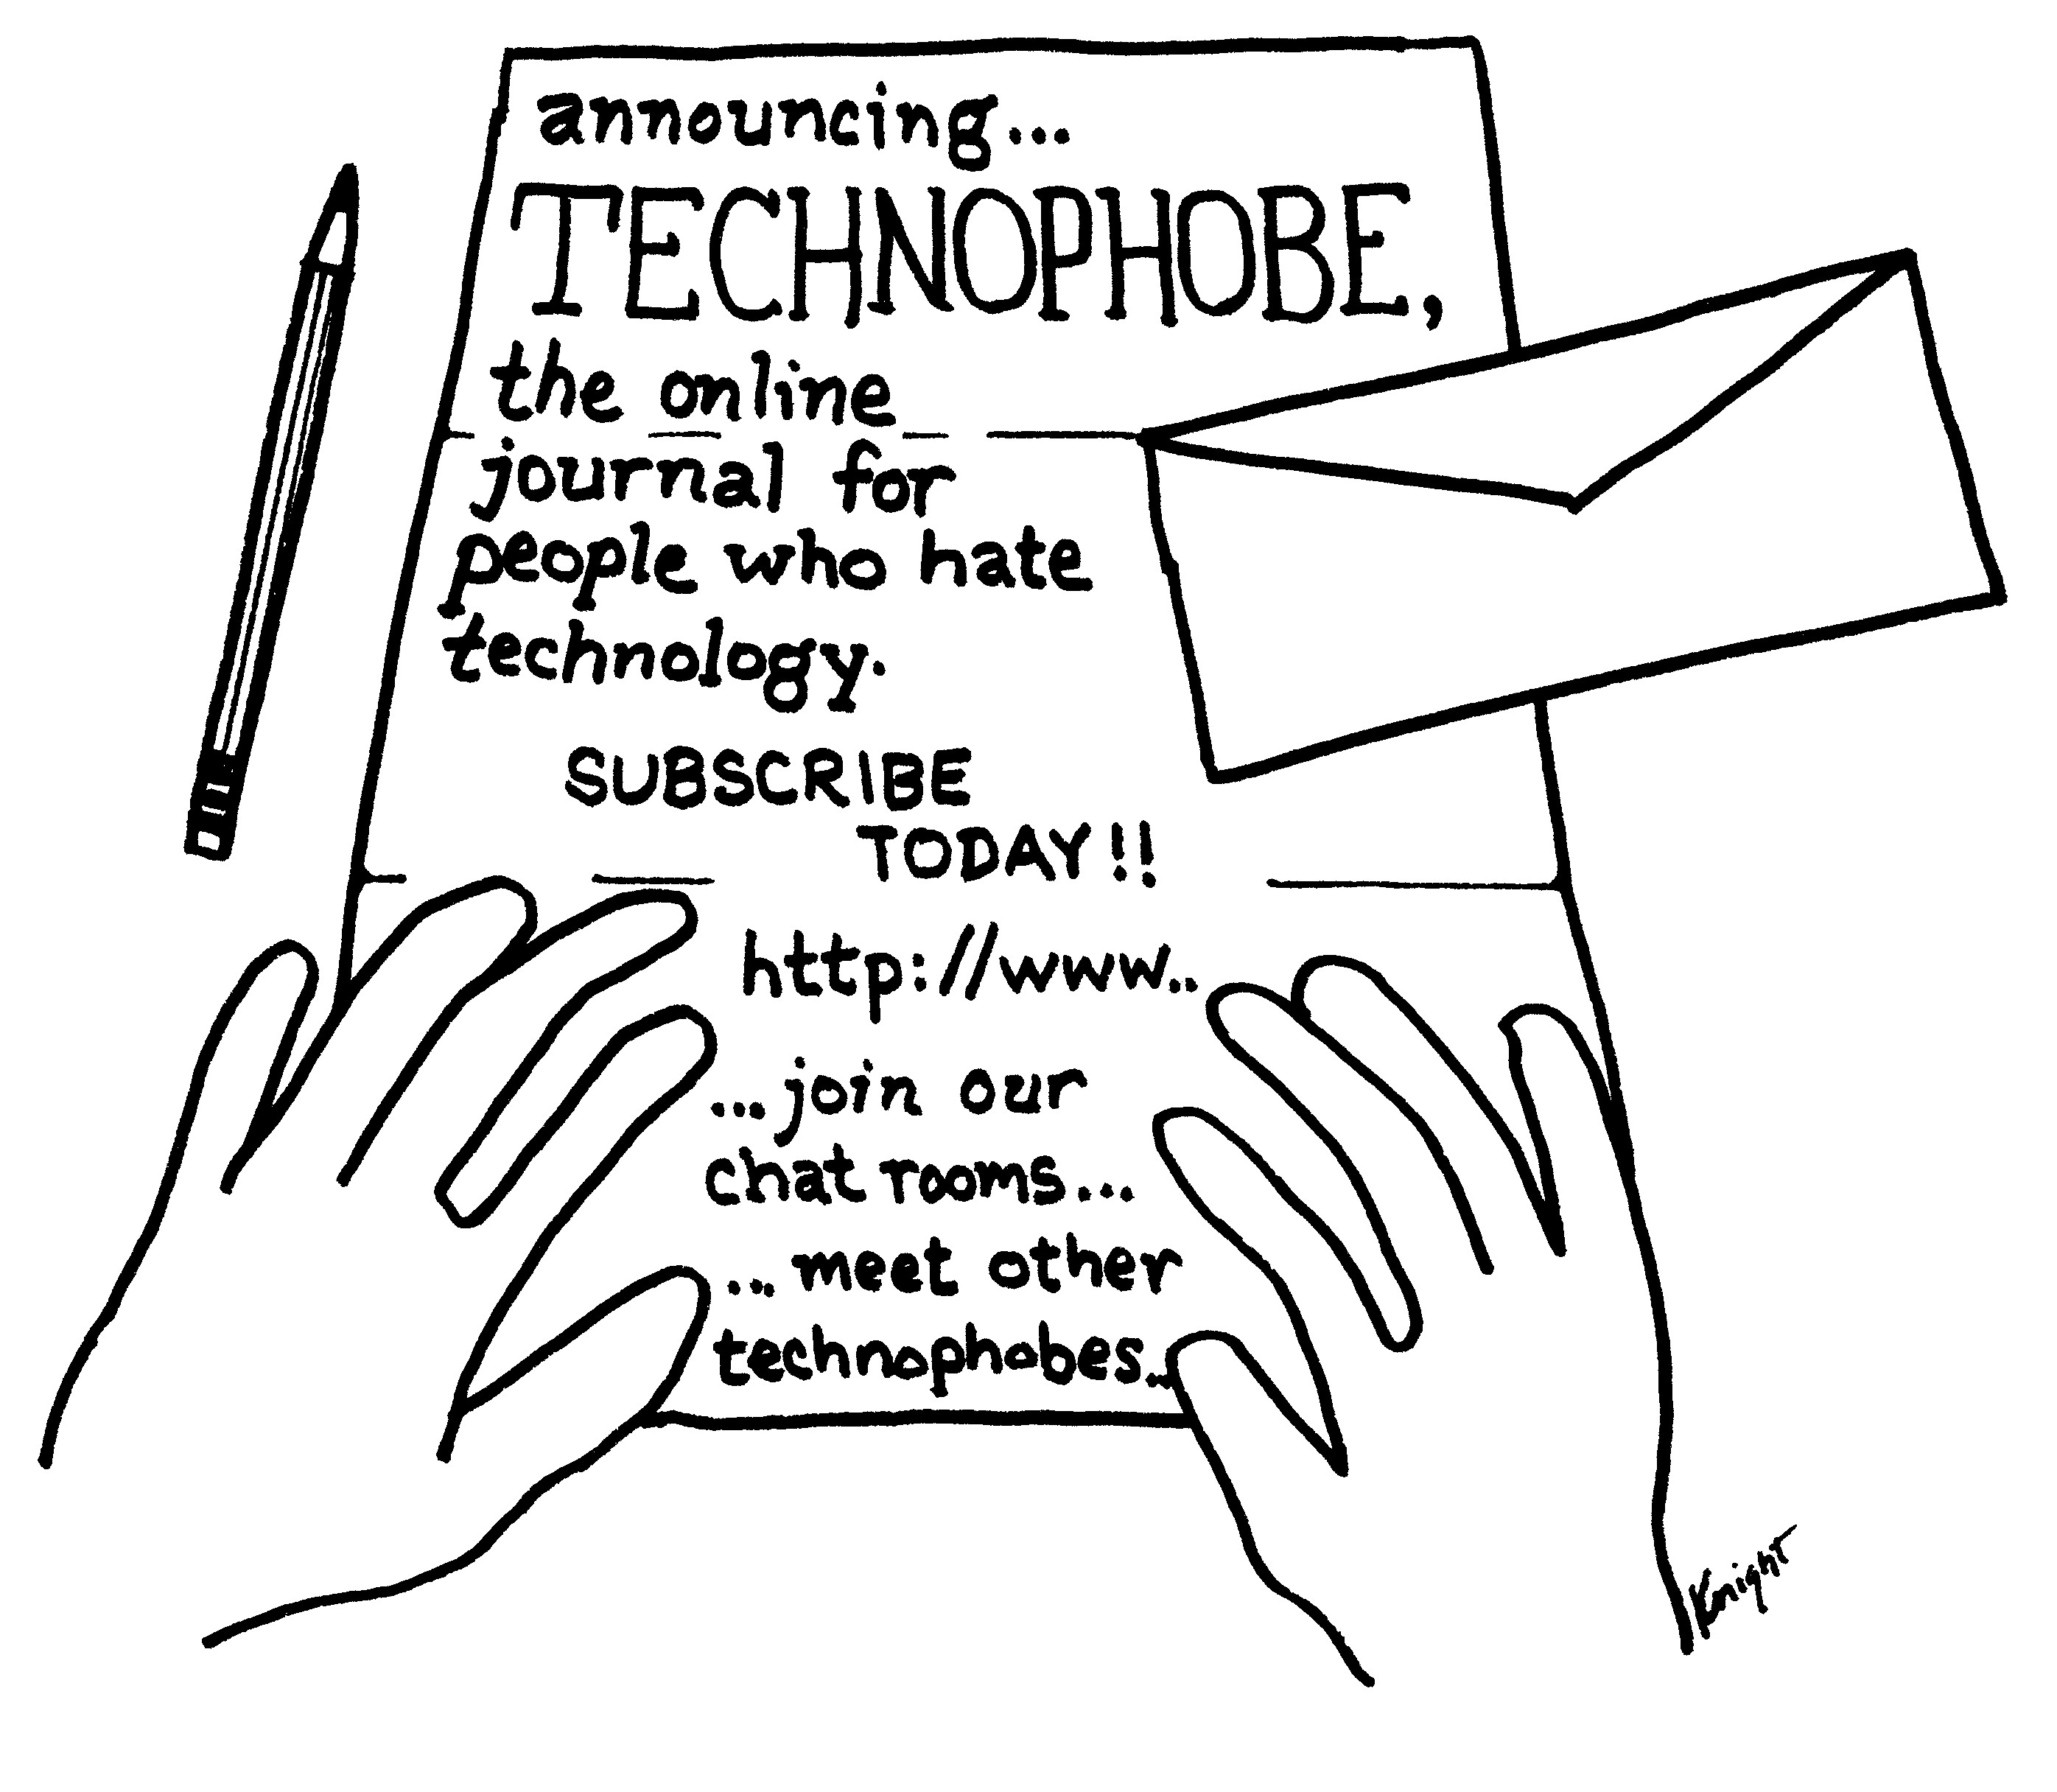 announcing...
TECHNOPHOBE,
the online
journal for
people who hate
technology.
SUBSCRIBE
TODAY!!
http://www..
...join our
chat rooms...
...meet other
technophobes...
Knight